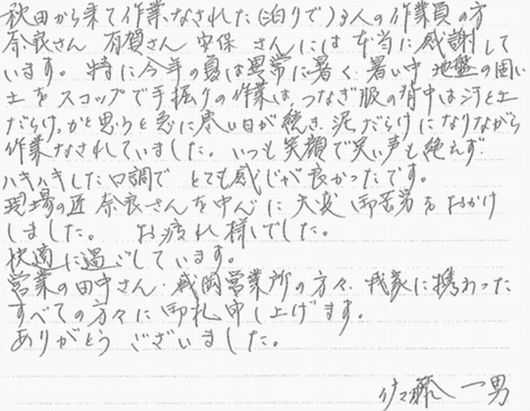 秋田から来て作業なされた(泊りで)3人の作業員の方
奈良さん 有賀さん 安保さんには本当に感謝して
います。特に今年の夏は異常に暑く、暑い中 地盤の固い
土をスコップで手掘りの作業は、つなぎ服の背中は汗と土
だらけ。かと思うと急に寒い日が続き、泥だらけになりながら
作業なされていました。いつも笑顔で笑い声も絶えず
ハキハキした口調で とても感じが良かったです。
現場の匠 奈良さんを中心に 大変 御苦労をおかけ
しました。 お疲れ様でした。
快適に過ごしています。
営業の田中さん、盛岡営業所の方々、我家に携わった
すべての方々に御礼申し上げます。
ありがとう ございました。
佐藤 一男